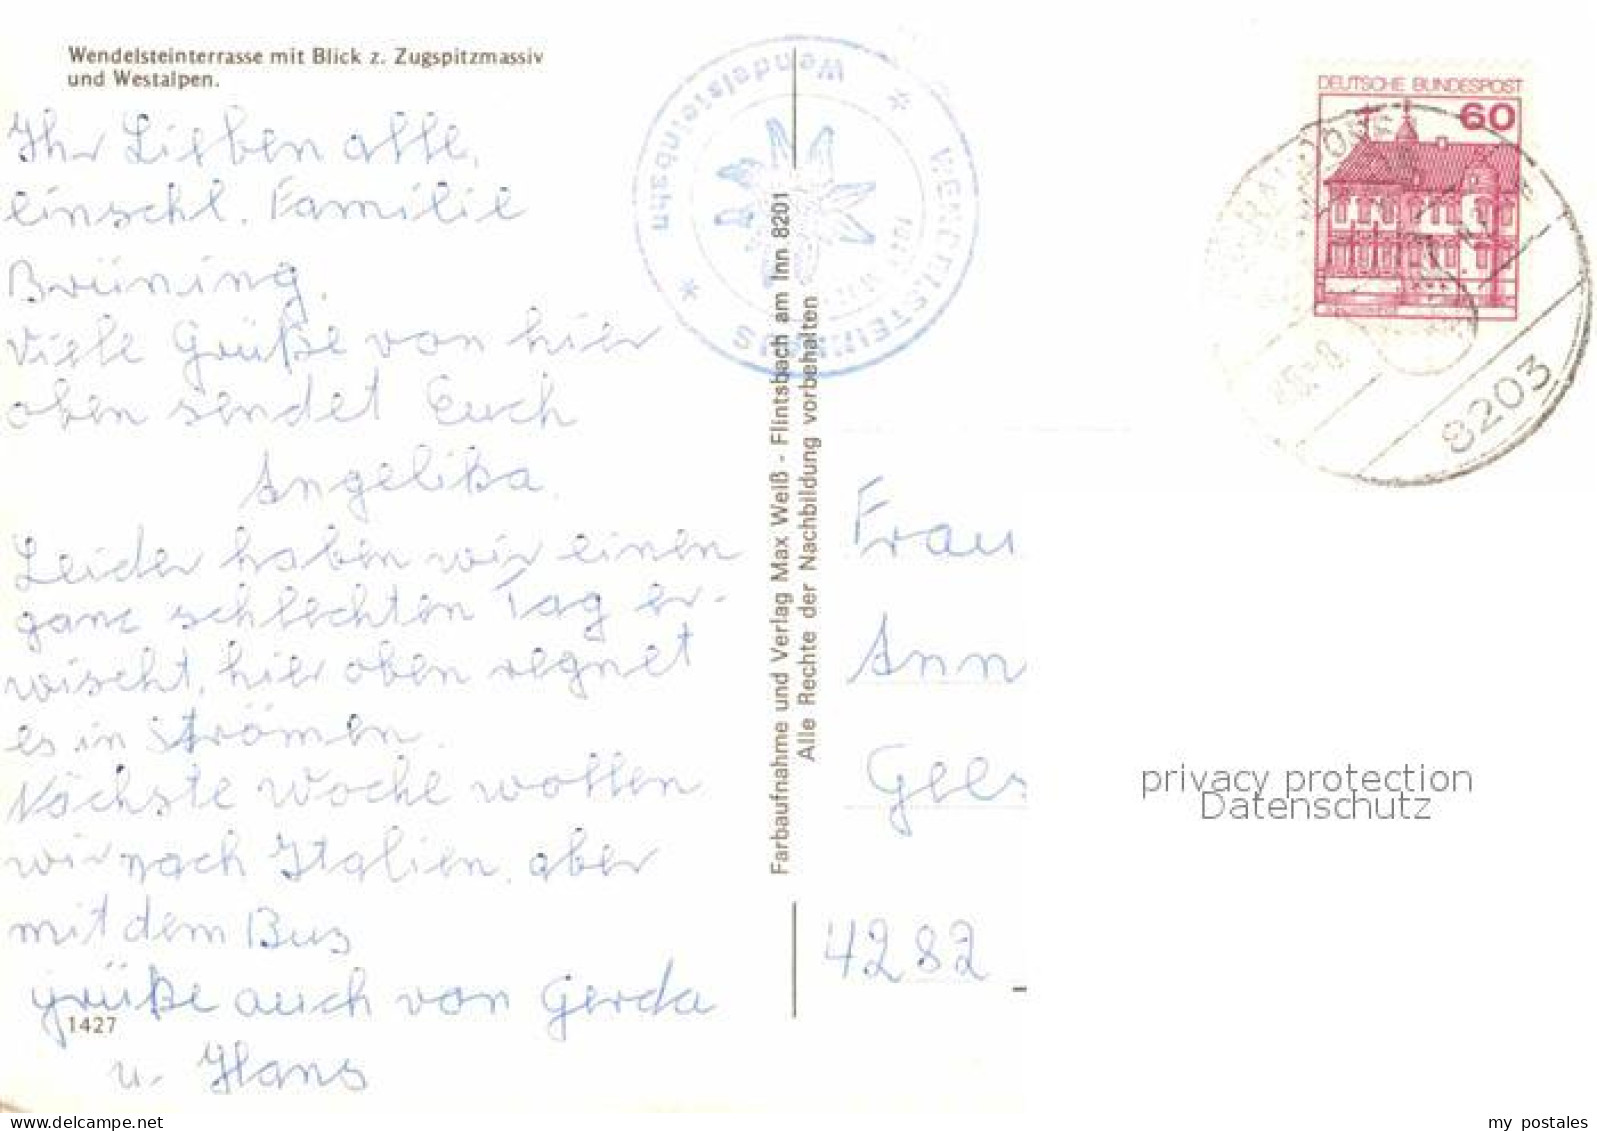 Wendelsteinterrasse mit Blick z. Zugspitzmassiv
und Westalpen.
Ihr Lieben alle,
einschl. Familie
Brüning,
Viele Grüße von hier
oben sendet Euch
Angelika.
Leider haben wir einen
ganz schlechten Tag er-
wischt, hier oben regnet
es in strömen.
Nächste Woche wollen
wir nach Italien, aber
mit dem Bus
grüße auch von Gerda
u. Hans
1427
Wendelsteinbahn
* WENDELSTEINHAUS *
Farbaufnahme und Verlag Max Weiß - Flintsbach am Inn 8201
Alle Rechte der Nachbildung vorbehalten
DEUTSCHE BUNDESPOST
60
8203
Frau
Ann
Gees
4282
privacy protection
Datenschutz
www.delcampe.net
my_postales